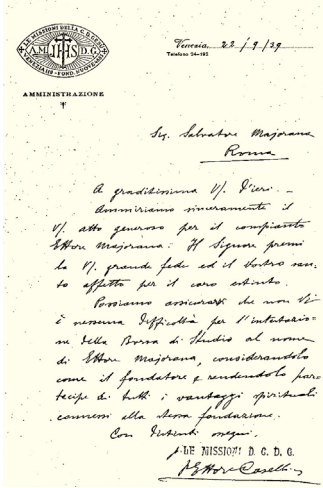 LE MISSIONI DELLA C. DI GESÙ
A.M. IHS D.G.
VENEZIA 119 - FOND. NUOVE 4885
AMMINISTRAZIONE
Venezia, 22/9/39
Telefono 24-192
Sig. Salvatore Majorana
Roma
A graditissima V/. d'ieri. -
Ammiriamo sinceramente il
V/. atto generoso per il compianto
Ettore Majorana. Il Signore premi
la V/. grande fede ed il Vostro san-
to affetto per il caro estinto.
Possiamo assicurarVi che non Vi
è nessuna difficoltà per l'intestazio-
ne della Borsa di Studio al nome
di Ettore Majorana, considerandolo
come il fondatore e rendendolo par-
tecipe di tutti i vantaggi spirituali
connessi alla stessa fondazione.
Con distinti ossequi.
p. LE MISSIONI D. C. D. G.
Ettore Caselli